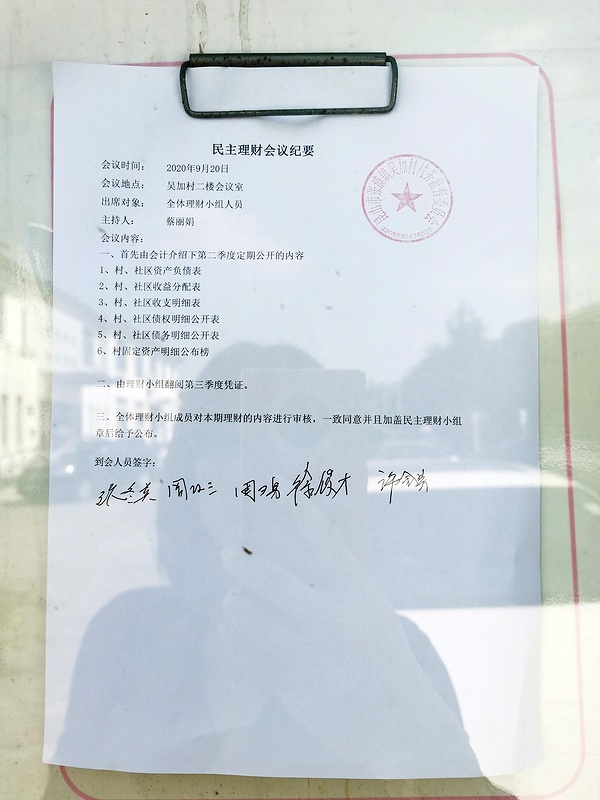 民主理财会议纪要
会议时间： 2020年9月20日
会议地点： 吴加村二楼会议室
出席对象： 全体理财小组人员
主持人： 蔡丽娟
会议内容：
一、首先由会计介绍下第二季度定期公开的内容
1、村、社区资产负债表
2、村、社区收益分配表
3、村、社区收支明细表
4、村、社区债权明细公开表
5、村、社区债务明细公开表
6、村固定资产明细公布榜
二、由理财小组翻阅第三季度凭证。
三、全体理财小组成员对本期理财的内容进行审核，一致同意并且加盖民主理财小组
章后给予公布。
到会人员签字：
昆山市张浦镇吴加村村务监督委员会